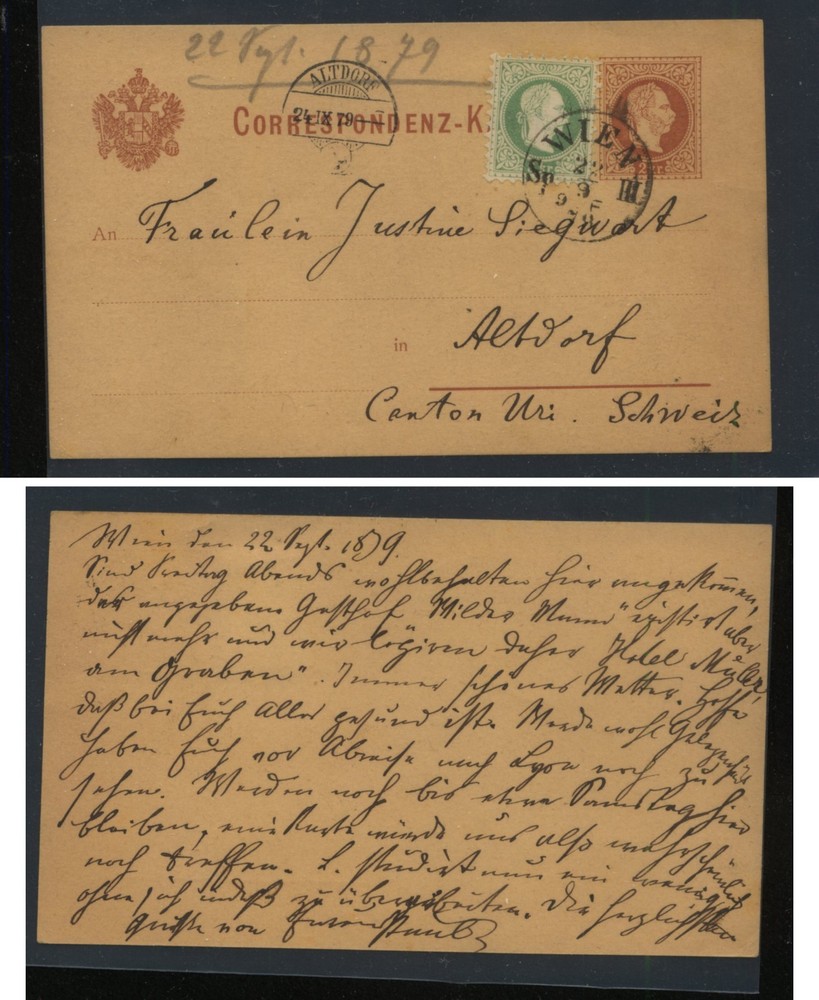 22 Sept. 1879
ALTDORF
24 IX 79
CORRESPONDENZ-K
WIEN
22
9
III
An Fräulein Justine Siegwart
in Altdorf
Canton Uri. Schweiz
Wien den 22 Sept. 1879.
Sind Freitag Abends wohlbehalten hier angekommen,
der angegebene Gasthof "Wilder Mann" existirt aber
nicht mehr und wir logiren daher "Hotel Müller,
am Graben". Immer schönes Wetter. Hoffe
daß bei Euch Alles gesund ist. Werde wohl Gelegenheit
haben Euch vor Abreise nach Lyon noch zu
sehen. Werden noch bis etwa Samstag hier
bleiben, eine Karte würde uns also wahrscheinlich
noch treffen. L. studirt nun ein wenig,
ohne sich indeß zu überarbeiten. Die herzlichsten
Grüße von